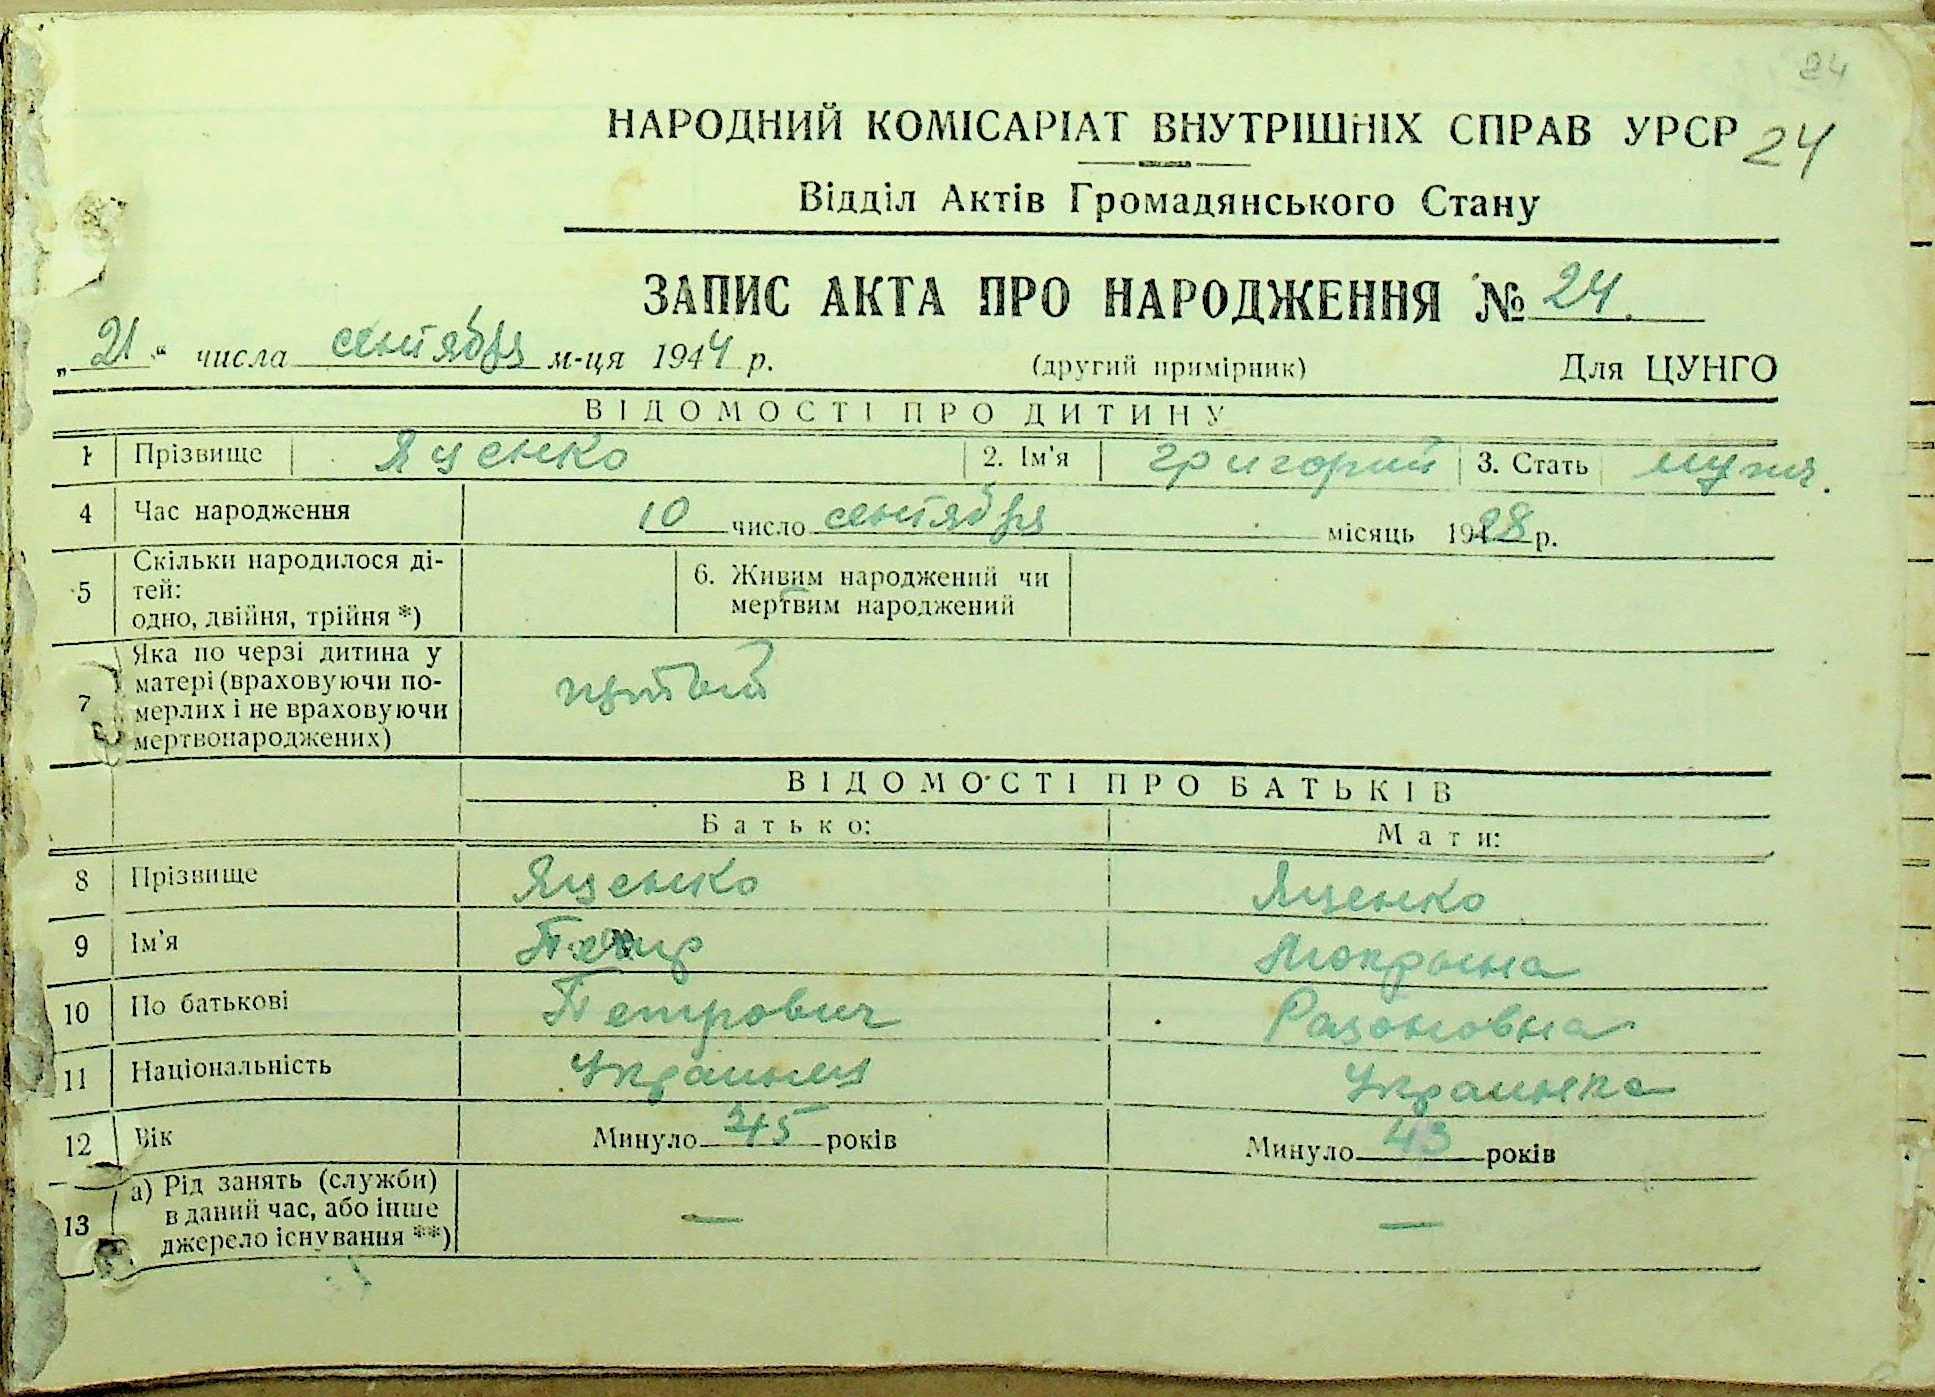 24
НАРОДНИЙ КОМІСАРІАТ ВНУТРІШНІХ СПРАВ УРСР 24
Відділ Актів Громадянського Стану
ЗАПИС АКТА ПРО НАРОДЖЕННЯ № 24.
„21“ числа сентября м-ця 1944 р. (другий примірник) Для ЦУНГО
ВІДОМОСТІ ПРО ДИТИНУ
1 Прізвище Яценко 2. Ім'я Григорий 3. Стать мужч.
4 Час народження 10 число сентября місяць 1928 р.
5 Скільки народилося ді-
тей:
одно, двійня, трійня *)
6. Живим народжений чи
мертвим народжений
7 Яка по черзі дитина у
матері (враховуючи по-
мерлих і не враховуючи
мертвонароджених)
пятый
ВІДОМОСТІ ПРО БАТЬКІВ
Батько: Мати:
8 Прізвище Яценко Яценко
9 Ім'я Петр Мокрына
10 По батькові Петрович
11 Національність Украинец Украинка
12 Вік Минуло 45 років Минуло 43 років
13 а) Рід занять (служби)
в даний час, або інше
джерело існування **)
— —